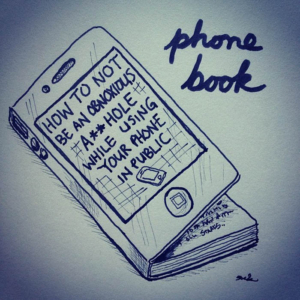 phone
book
HOW TO NOT
BE AN OBNOXIOUS
A**HOLE
WHILE USING
YOUR PHONE
IN PUBLIC